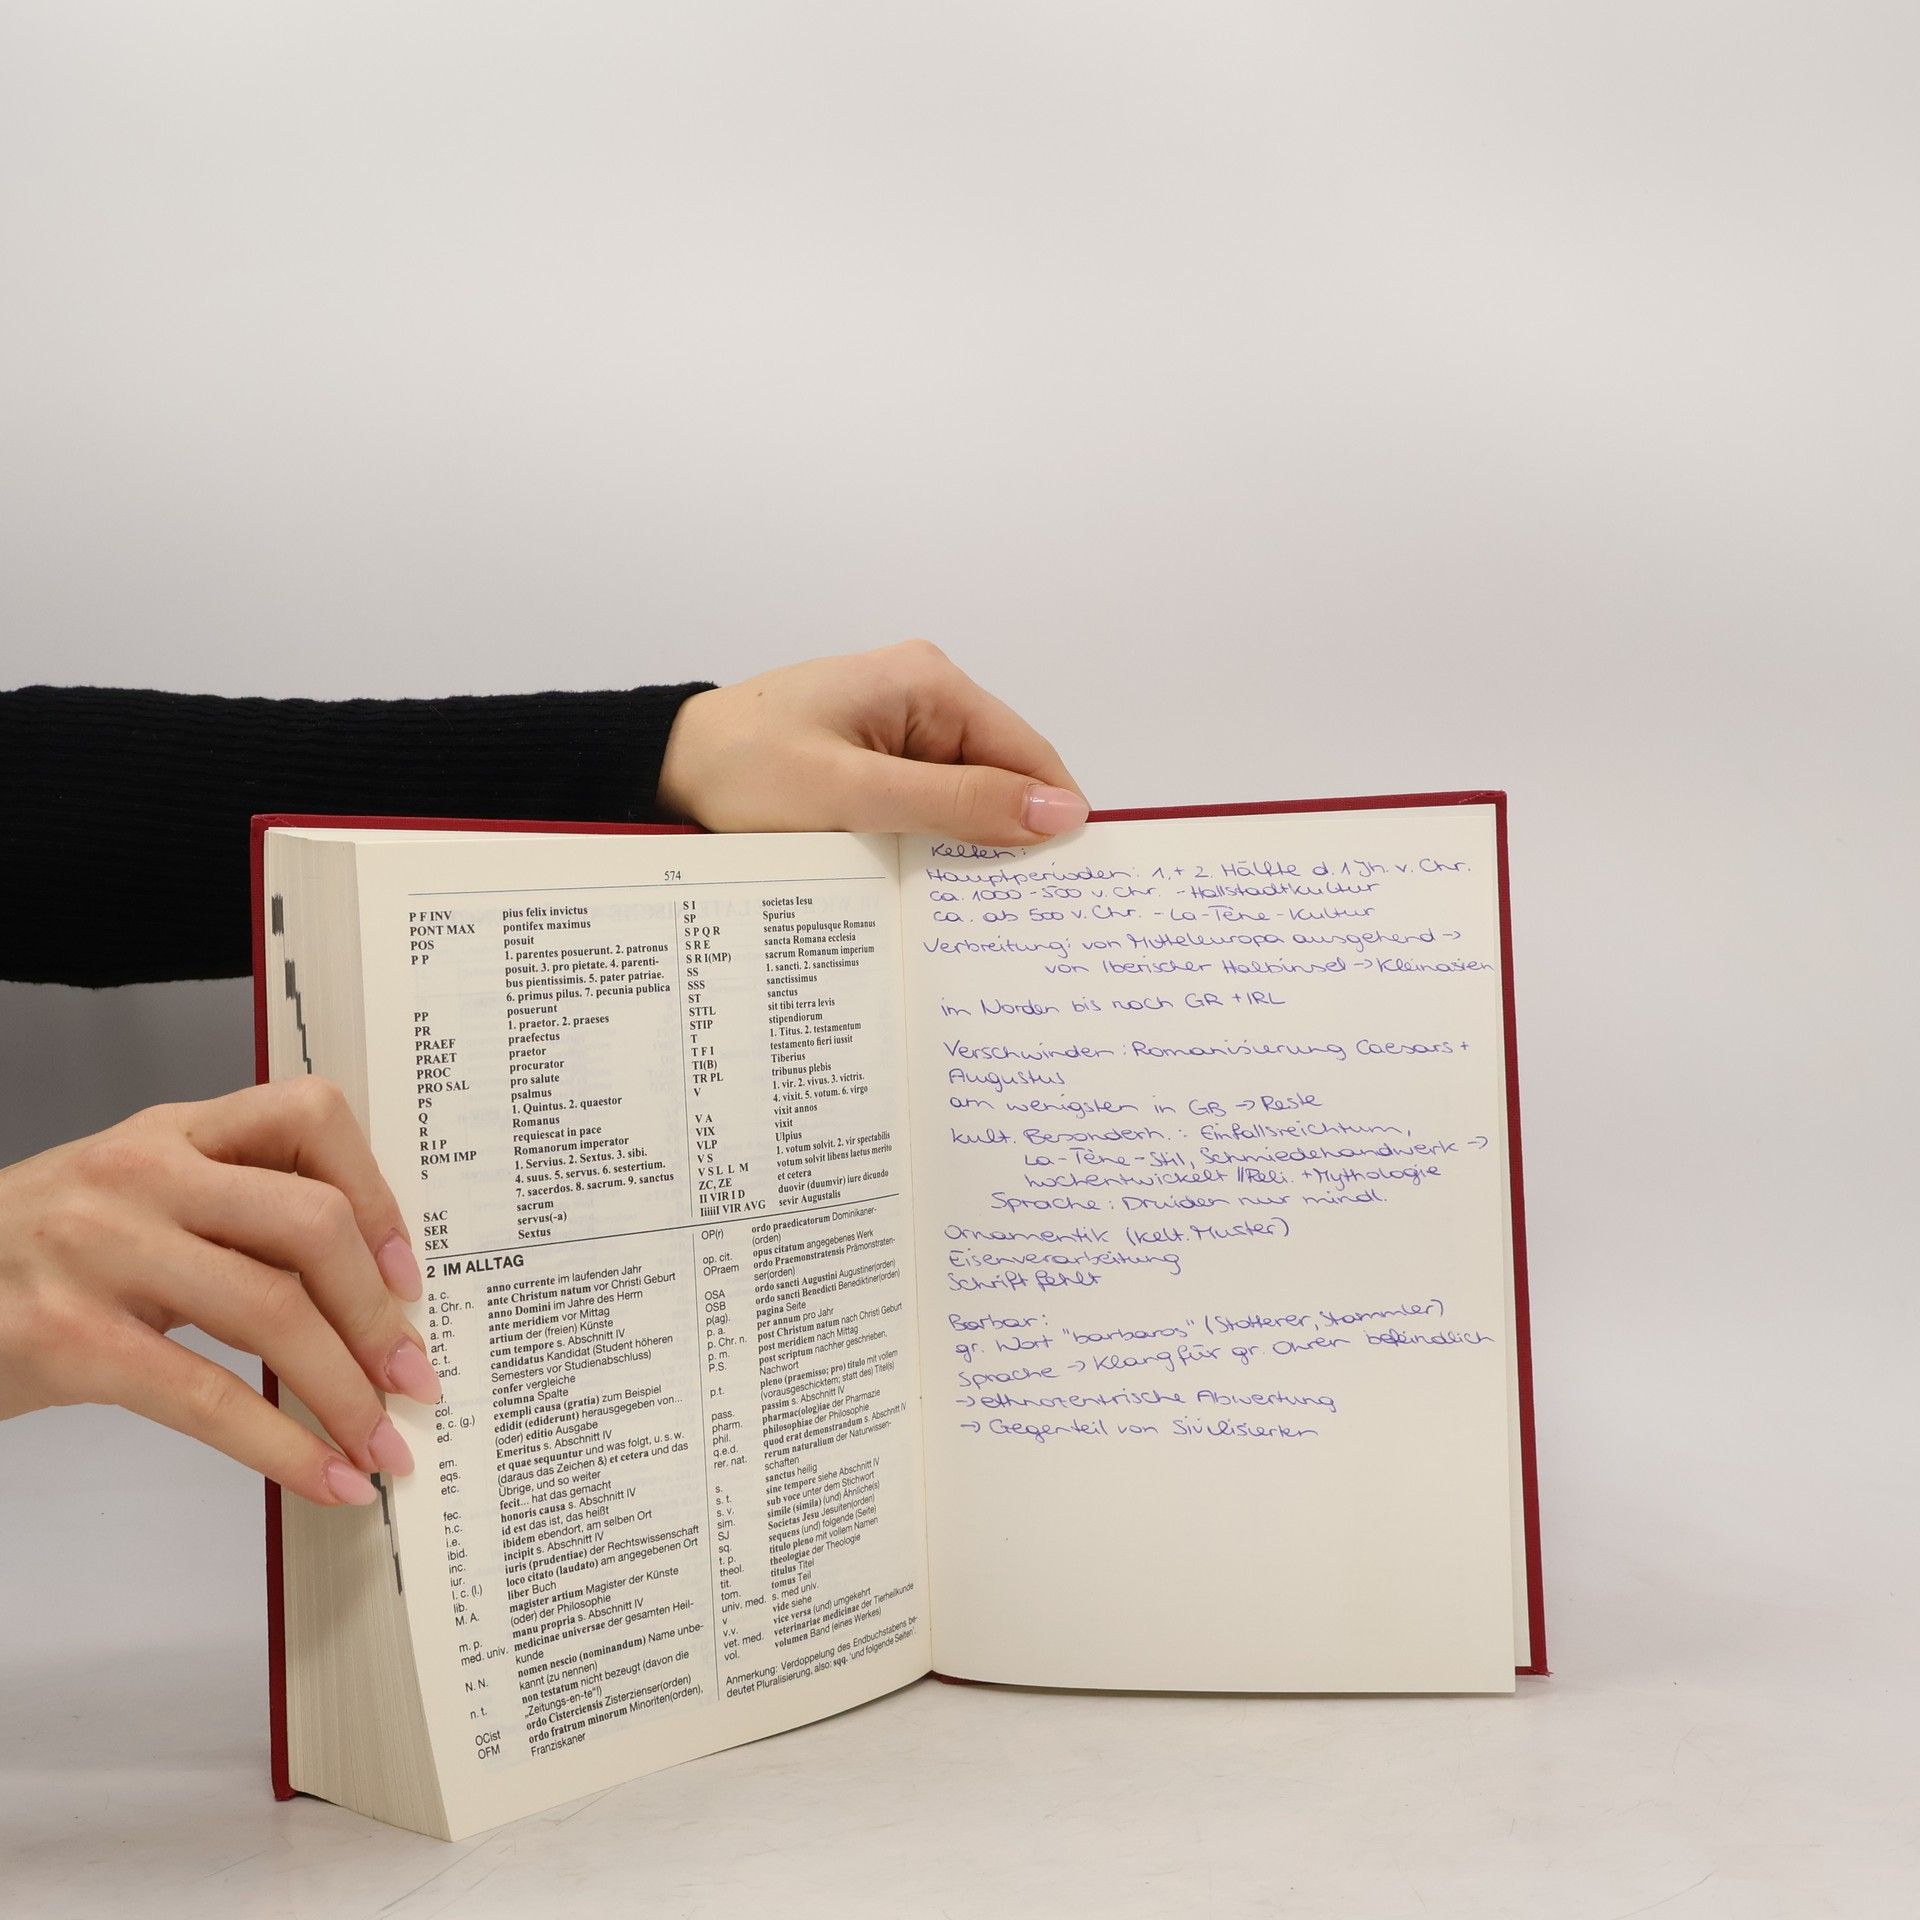 574
P F INV pius felix invictus
PONT MAX pontifex maximus
POS posuit
P P 1. parentes posuerunt. 2. patronus
posuit. 3. pro pietate. 4. parenti-
bus pientissimis. 5. pater patriae.
6. primus pilus. 7. pecunia publica
PP posuerunt
PR 1. praetor. 2. praeses
PRAEF praefectus
PRAET praetor
PROC procurator
PRO SAL pro salute
PS psalmus
Q 1. Quintus. 2. quaestor
R Romanus
R I P requiescat in pace
ROM IMP Romanorum imperator
S 1. Servius. 2. Sextus. 3. sibi.
4. suus. 5. servus. 6. sestertium.
7. sacerdos. 8. sacrum. 9. sanctus
SAC sacrum
SER servus(-a)
SEX Sextus
S I societas Iesu
SP Spurius
S P Q R senatus populusque Romanus
S R E sancta Romana ecclesia
S R I(MP) sacrum Romanum imperium
SS 1. sancti. 2. sanctissimus
SSS sanctissimus
ST sanctus
STTL sit tibi terra levis
STIP stipendiorum
T 1. Titus. 2. testamentum
T F I testamento fieri iussit
TI(B) Tiberius
TR PL tribunus plebis
V 1. vir. 2. vivus. 3. victrix.
4. vixit. 5. votum. 6. virgo
V A vixit annos
VIX vixit
VLP Ulpius
V S 1. votum solvit. 2. vir spectabilis
V S L L M votum solvit libens laetus merito
ZC, ZE et cetera
II VIR I D duovir (duumvir) iure dicundo
IiiiiI VIR AVG sevir Augustalis
2 IM ALLTAG
a. c. anno currente im laufenden Jahr
a. Chr. n. ante Christum natum vor Christi Geburt
a. D. anno Domini im Jahre des Herrn
a. m. ante meridiem vor Mittag
art. artium der (freien) Künste
c. t. cum tempore s. Abschnitt IV
cand. candidatus Kandidat (Student höheren
Semesters vor Studienabschluss)
cf. confer vergleiche
col. columna Spalte
e. c. (g.) exempli causa (gratia) zum Beispiel
ed. edidit (ediderunt) herausgegeben von...
(oder) editio Ausgabe
em. Emeritus s. Abschnitt IV
eqs. et quae sequuntur und was folgt, u. s. w.
etc. (daraus das Zeichen &) et cetera und das
Übrige, und so weiter
fec. fecit... hat das gemacht
h.c. honoris causa s. Abschnitt IV
i.e. id est das ist, das heißt
ibid. ibidem ebendort, am selben Ort
inc. incipit s. Abschnitt IV
iur. iuris (prudentiae) der Rechtswissenschaft
l. c. (l.) loco citato (laudato) am angegebenen Ort
lib. liber Buch
M. A. magister artium Magister der Künste
(oder) der Philosophie
m. p. manu propria s. Abschnitt IV
med. univ. medicinae universae der gesamten Heil-
kunde
N. N. nomen nescio (nominandum) Name unbe-
kannt (zu nennen)
n. t. non testatum nicht bezeugt (davon die
„Zeitungs-en-te“!)
OCist ordo Cisterciensis Zisterzienser(orden)
OFM ordo fratrum minorum Minoriten(orden),
Franziskaner
OP(r) ordo praedicatorum Dominikaner-
(orden)
op. cit. opus citatum angegebenes Werk
OPraem ordo Praemonstratensis Prämonstraten-
ser(orden)
OSA ordo sancti Augustini Augustiner(orden)
OSB ordo sancti Benedicti Benediktiner(orden)
p(ag). pagina Seite
p. a. per annum pro Jahr
p. Chr. n. post Christum natum nach Christi Geburt
p. m. post meridiem nach Mittag
P.S. post scriptum nachher geschrieben,
Nachwort
p.t. pleno (praemisso; pro) titulo mit vollem
(vorausgeschicktem; statt des) Titel(s)
pass. passim s. Abschnitt IV
pharm. pharmac(olog)iae der Pharmazie
phil. philosophiae der Philosophie
q.e.d. quod erat demonstrandum s. Abschnitt IV
rer. nat. rerum naturalium der Naturwissen-
schaften
s. sanctus heilig
s. t. sine tempore siehe Abschnitt IV
s. v. sub voce unter dem Stichwort
sim. simile (similia) (und) Ähnliche(s)
SJ Societas Jesu Jesuiten(orden)
sq. sequens (und) folgende (Seite)
t. p. titulo pleno mit vollem Namen
theol. theologiae der Theologie
tit. titulus Titel
tom. tomus Teil
univ. med. s. med univ.
v vide siehe
v.v. vice versa (und) umgekehrt
vet. med. veterinariae medicinae der Tierheilkunde
vol. volumen Band (eines Werkes)
Anmerkung: Verdoppelung des Endbuchstabens be-
deutet Pluralisierung, also: sqq. 'und folgende Seiten'.
Kelten:
Hauptperioden: 1.+ 2. Hälfte d. 1 Jh. v. Chr.
ca. 1000 - 500 v. Chr. - Hallstadtkultur
ca. ab 500 v. Chr. - La-Tène-Kultur
Verbreitung: von Mitteleuropa ausgehend →
von Iberischer Halbinsel → Kleinasien
im Norden bis nach GR + IRL
Verschwinden: Romanisierung Caesars +
Augustus
am wenigsten in GB → Reste
kult. Besonderh.: Einfallsreichtum,
La-Tène-Stil, Schmiedehandwerk →
hochentwickelt // Reli. + Mythologie
Sprache: Druiden nur mündl.
Ornamentik (kelt. Muster)
Eisenverarbeitung
Schrift fehlt
Barbar:
gr. Wort "barbaros" (Stotterer, Stammler)
Sprache → Klang für gr. Ohren befindlich
→ ethnozentrische Abwertung
→ Gegenteil von Sivilisierten